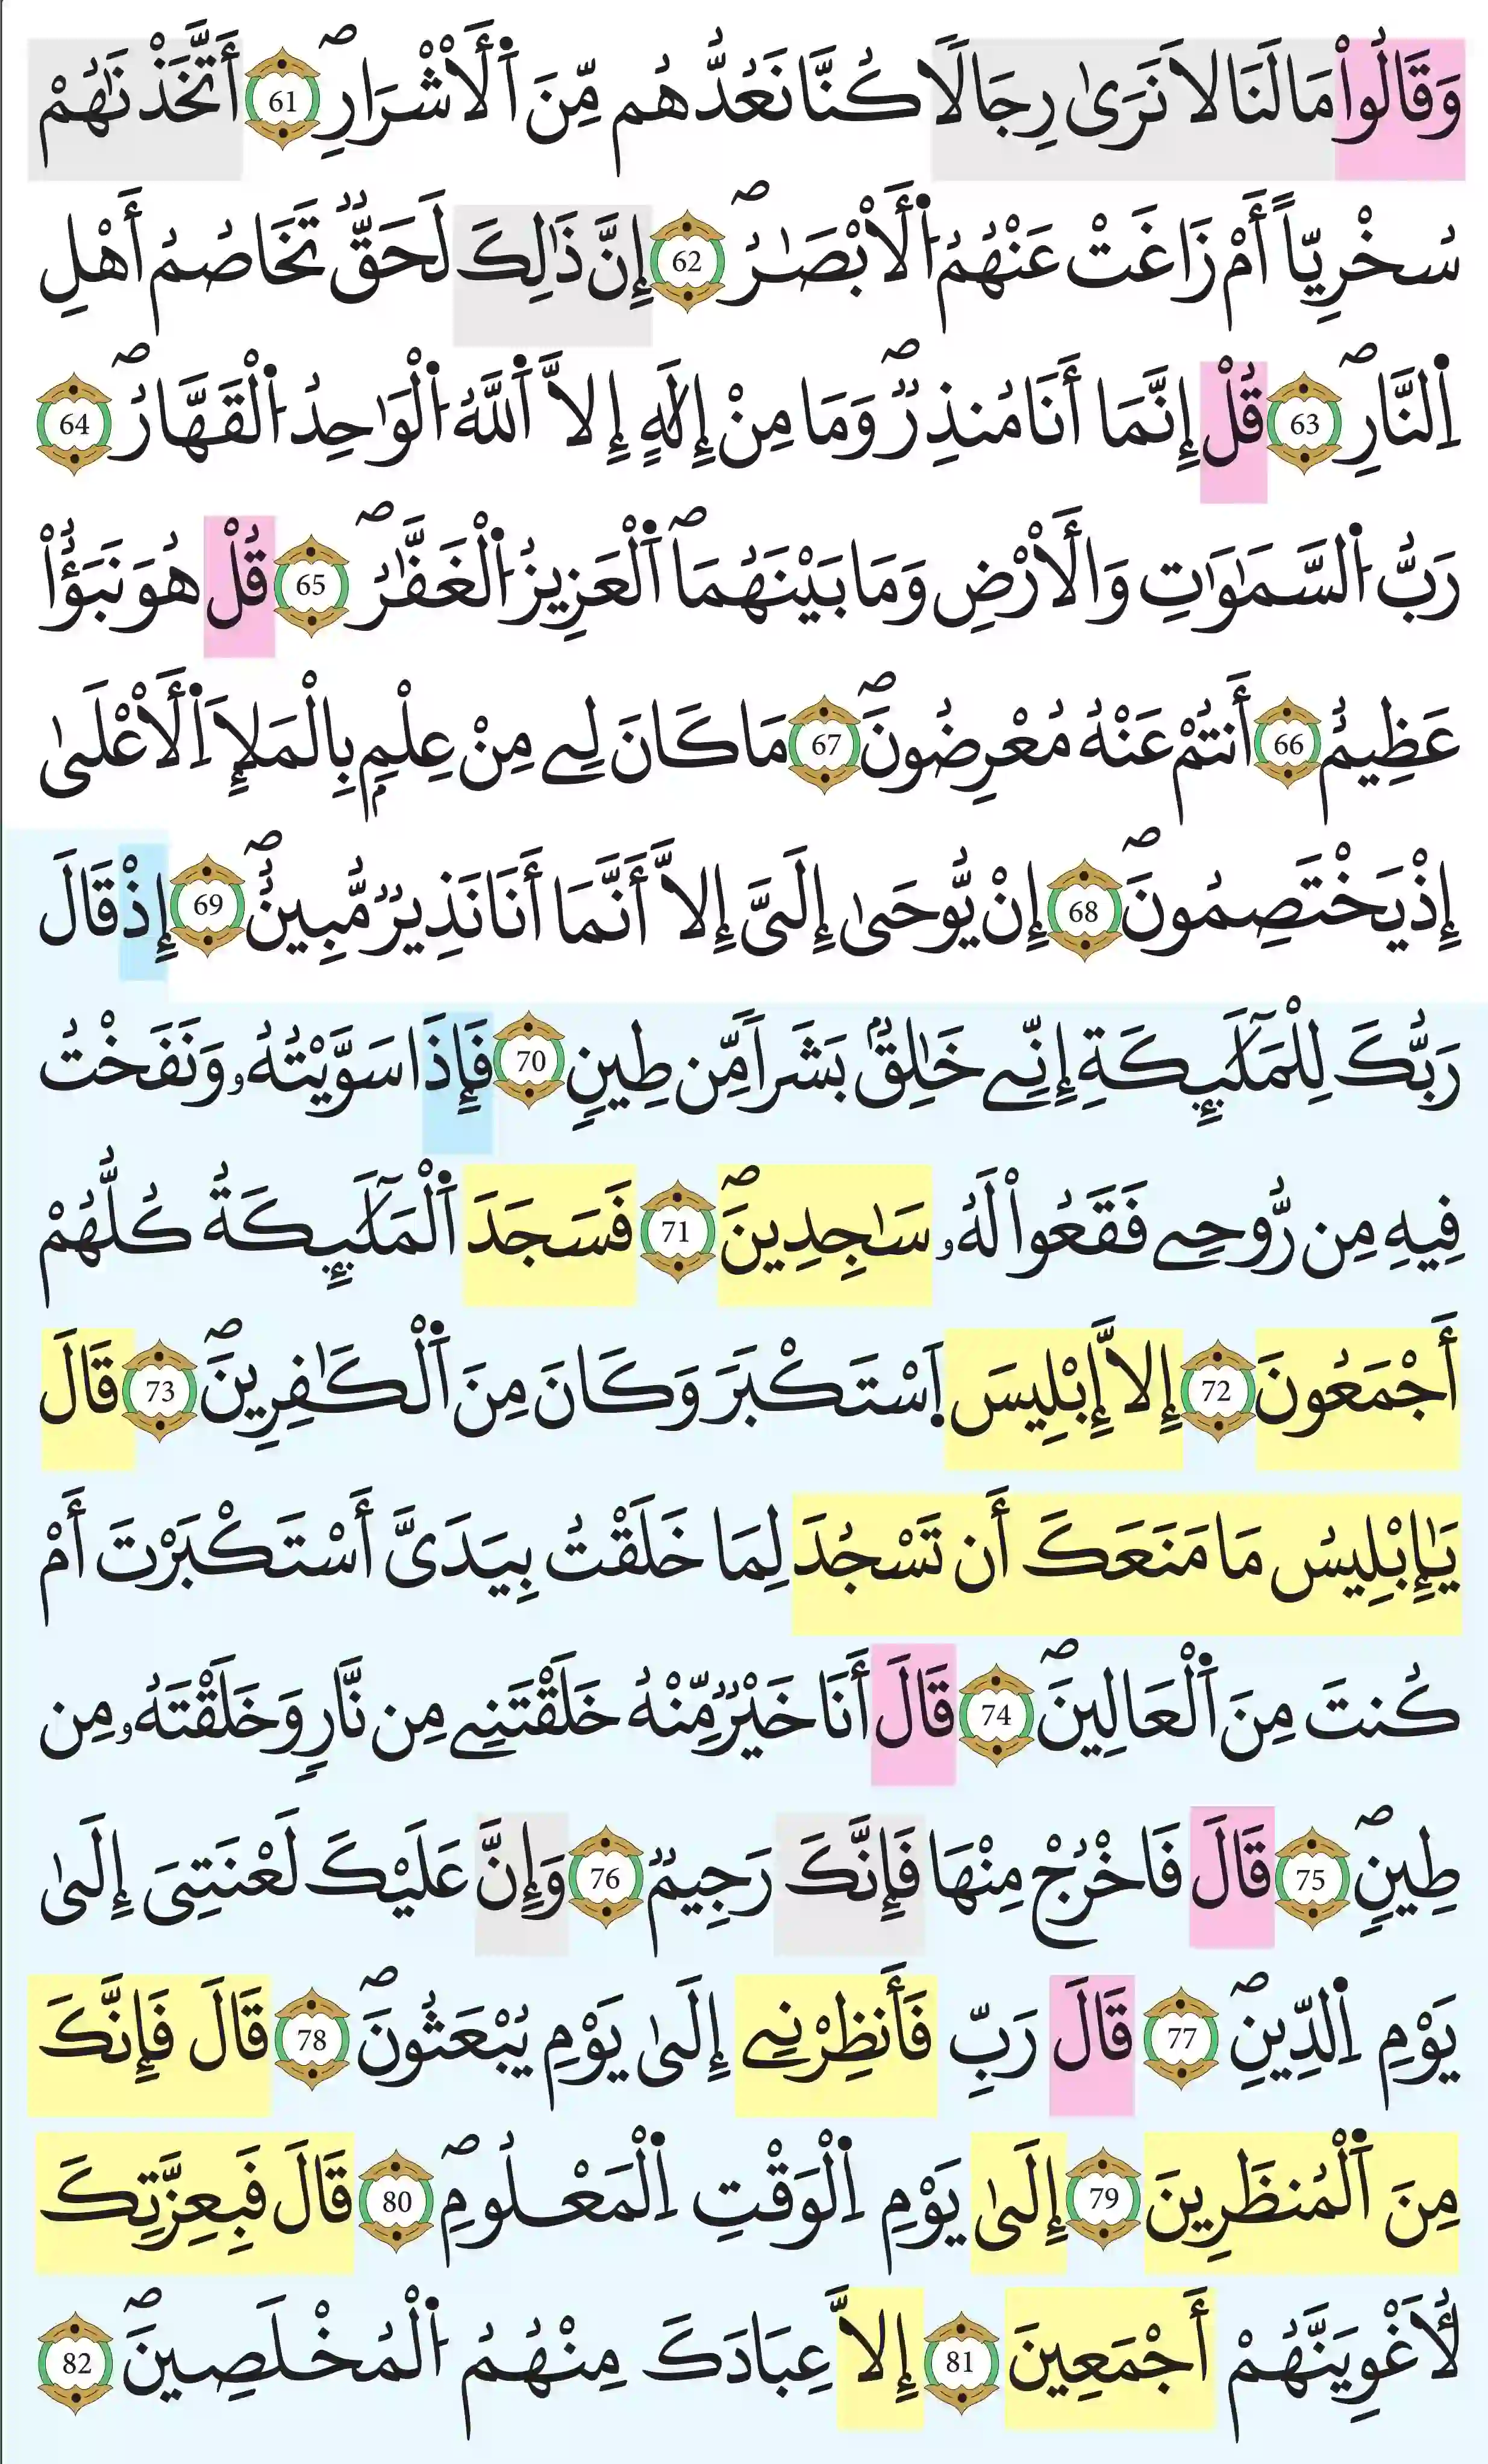 وَقَالُواْ مَا لَنَا لَا نَرَىٰ رِجَالًا كُنَّا نَعُدُّهُم مِّنَ اَ۬لْأَشْرَارِۖ 61 أَتَّخَذْنَٰهُمْ
سُخْرِيّاً أَمْ زَاغَتْ عَنْهُمُ اُ۬لْأَبْصَٰرُۖ 62 إِنَّ ذَٰلِكَ لَحَقّٞ تَخَاصُمُ أَهْلِ
اِ۬لنَّارِۖ 63 قُلْ إِنَّمَا أَنَا مُنذِرٞۖ وَمَا مِنْ إِلَٰهٍ إِلَّا اَ۬للَّهُ اُ۬لْوَٰحِدُ اُ۬لْقَهَّارُۖ 64
رَبُّ اُ۬لسَّمَٰوَٰتِ وَالْأَرْضِ وَمَا بَيْنَهُمَاۖ اَ۬لْعَزِيزُ اُ۬لْغَفَّٰرُۖ 65 قُلْ هُوَ نَبَؤٌاْ
عَظِيمٌ 66 أَنتُمْ عَنْهُ مُعْرِضُونَۖ 67 مَا كَانَ لِے مِنْ عِلْمِۢ بِالْمَلَإِ اِ۬لْأَعْلَىٰ
إِذْ يَخْتَصِمُونَۖ 68 إِنْ يُّوحَىٰ إِلَيَّ إِلَّا أَنَّمَا أَنَا نَذِيرٞ مُّبِينٌۖ 69 إِذْ قَالَ
رَبُّكَ لِلْمَلَٰٓئِكَةِ إِنِّے خَٰلِقُۢ بَشَراٗ مِّن طِينٍ 70 فَإِذَا سَوَّيْتُهُۥ وَنَفَخْتُ
فِيهِ مِن رُّوحِے فَقَعُواْ لَهُۥ سَٰجِدِينَۖ 71 فَسَجَدَ اَ۬لْمَلَٰٓئِكَةُ كُلُّهُمْ
أَجْمَعُونَ 72 إِلَّا إِبْلِيسَ اَ۪سْتَكْبَرَ وَكَانَ مِنَ اَ۬لْكَٰفِرِينَۖ 73 قَالَ
يَٰإِبْلِيسُ مَا مَنَعَكَ أَن تَسْجُدَ لِمَا خَلَقْتُ بِيَدَيَّ أَسْتَكْبَرْتَ أَمْ
كُنتَ مِنَ اَ۬لْعَالِينَۖ 74 قَالَ أَنَا خَيْرٞ مِّنْهُ خَلَقْتَنِے مِن نَّارٖ وَخَلَقْتَهُۥ مِن
طِينٍۖ 75 قَالَ فَاخْرُجْ مِنْهَا فَإِنَّكَ رَجِيمٞ 76 وَإِنَّ عَلَيْكَ لَعْنَتِيَ إِلَىٰ
يَوْمِ اِ۬لدِّينِۖ 77 قَالَ رَبِّ فَأَنظِرْنِے إِلَىٰ يَوْمِ يُبْعَثُونَۖ 78 قَالَ فَإِنَّكَ
مِنَ اَ۬لْمُنظَرِينَ 79 إِلَىٰ يَوْمِ اِ۬لْوَقْتِ اِ۬لْمَعْلُومِۖ 80 قَالَ فَبِعِزَّتِكَ
لَأُغْوِيَنَّهُمْ أَجْمَعِينَ 81 إِلَّا عِبَادَكَ مِنْهُمُ اُ۬لْمُخْلَصِينَۖ 82